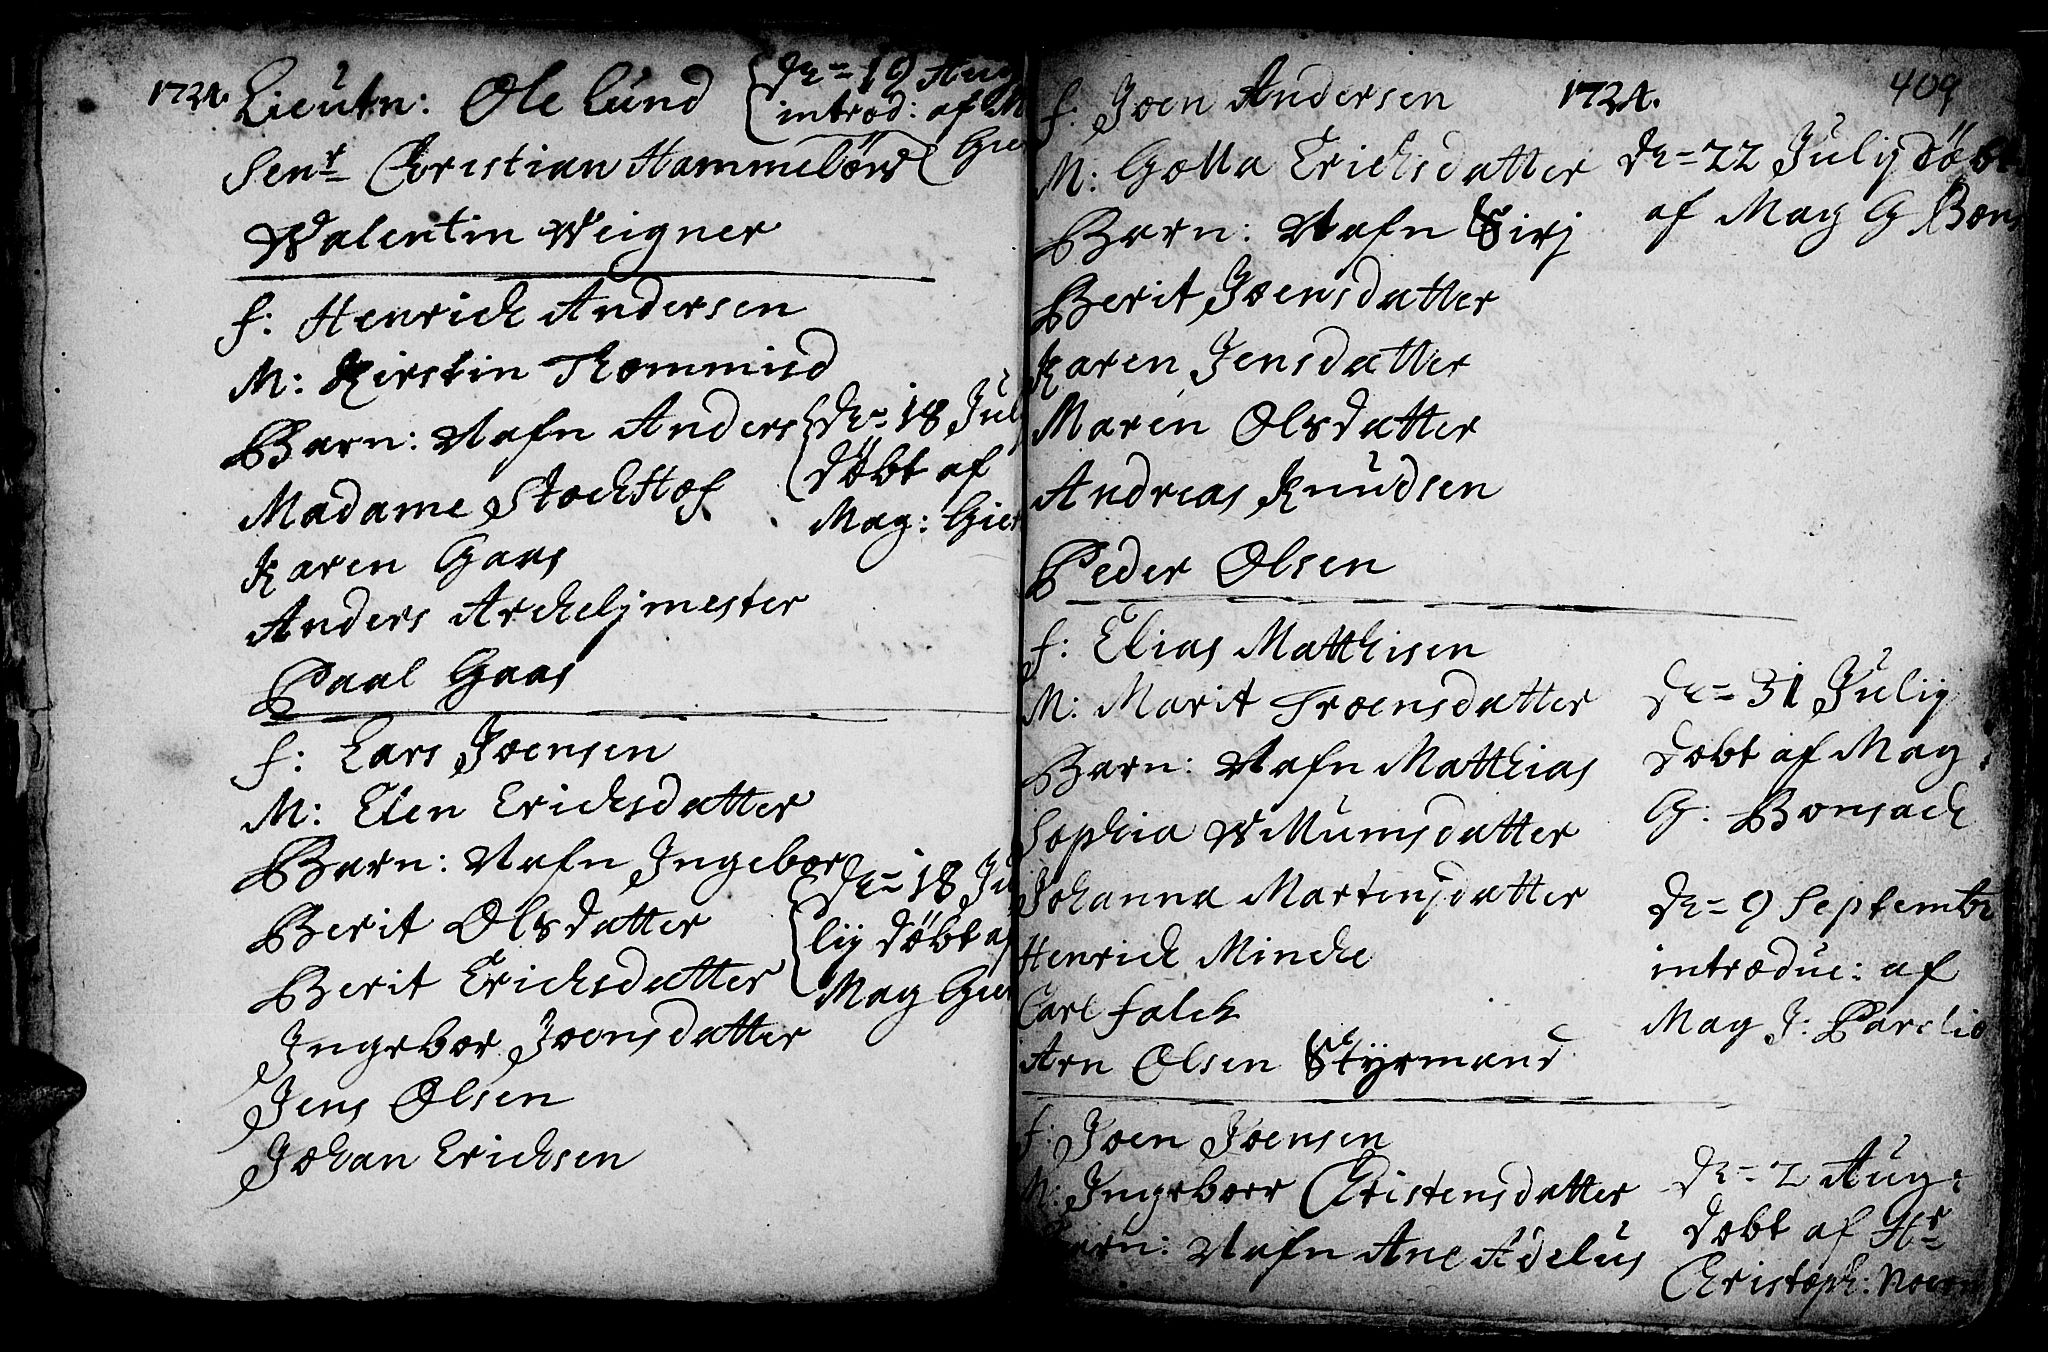 1724.
Lieutn: Ole Lund
Dn= 19 Aug
introd: af M
Gier
Senr Christian Hammelöw
Valentin Weigner
f: Henrich Andersen
M: Kirstin Thommisd
Barn: Nafn Anders
Dn= 18 Jul
döbt af
Mag: Gier
Madame Stochhof
Karen Gaas
Anders Archelymester
Paal Gaas
f: Lars Joensen
M: Elen Erichsdatter
Barn: Nafn Ingebor
Dn= 18 Ju
lij döbt af
Mag Gier
Berit Olsdatter
Berit Erichsdatter
Ingebor Joensdatter
Jens Olsen
Johan Erichsen
1724.
409
f: Joen Andersen
M: Golla Erichsdatter
Dn= 22 Julij döbt
af Mag G Bons
Barn: Nafn Sirj
Berit Joensdatter
Karen Jensdatter
Maren Olsdatter
Andreas Knudsen
Peder Olsen
f: Elias Matthisen
M: Marit Troensdatter
Dn= 31 Julij
döbt af Mag:
G: Bonsach
Barn: Nafn Matthias
Sophia Mumsdatter
Johanna Martensdatter
Dn= 9 Septembr
introduc: af
Mag J: Parelio
Henrich Minche
Carl falch
Arn Olsen Styrmand
f: Joen Joensen
M: Ingeborr Christensdatter
Dn= 2 Aug:
döbt af Hr
Christoph:
Barn: Nafn Ane Adelus